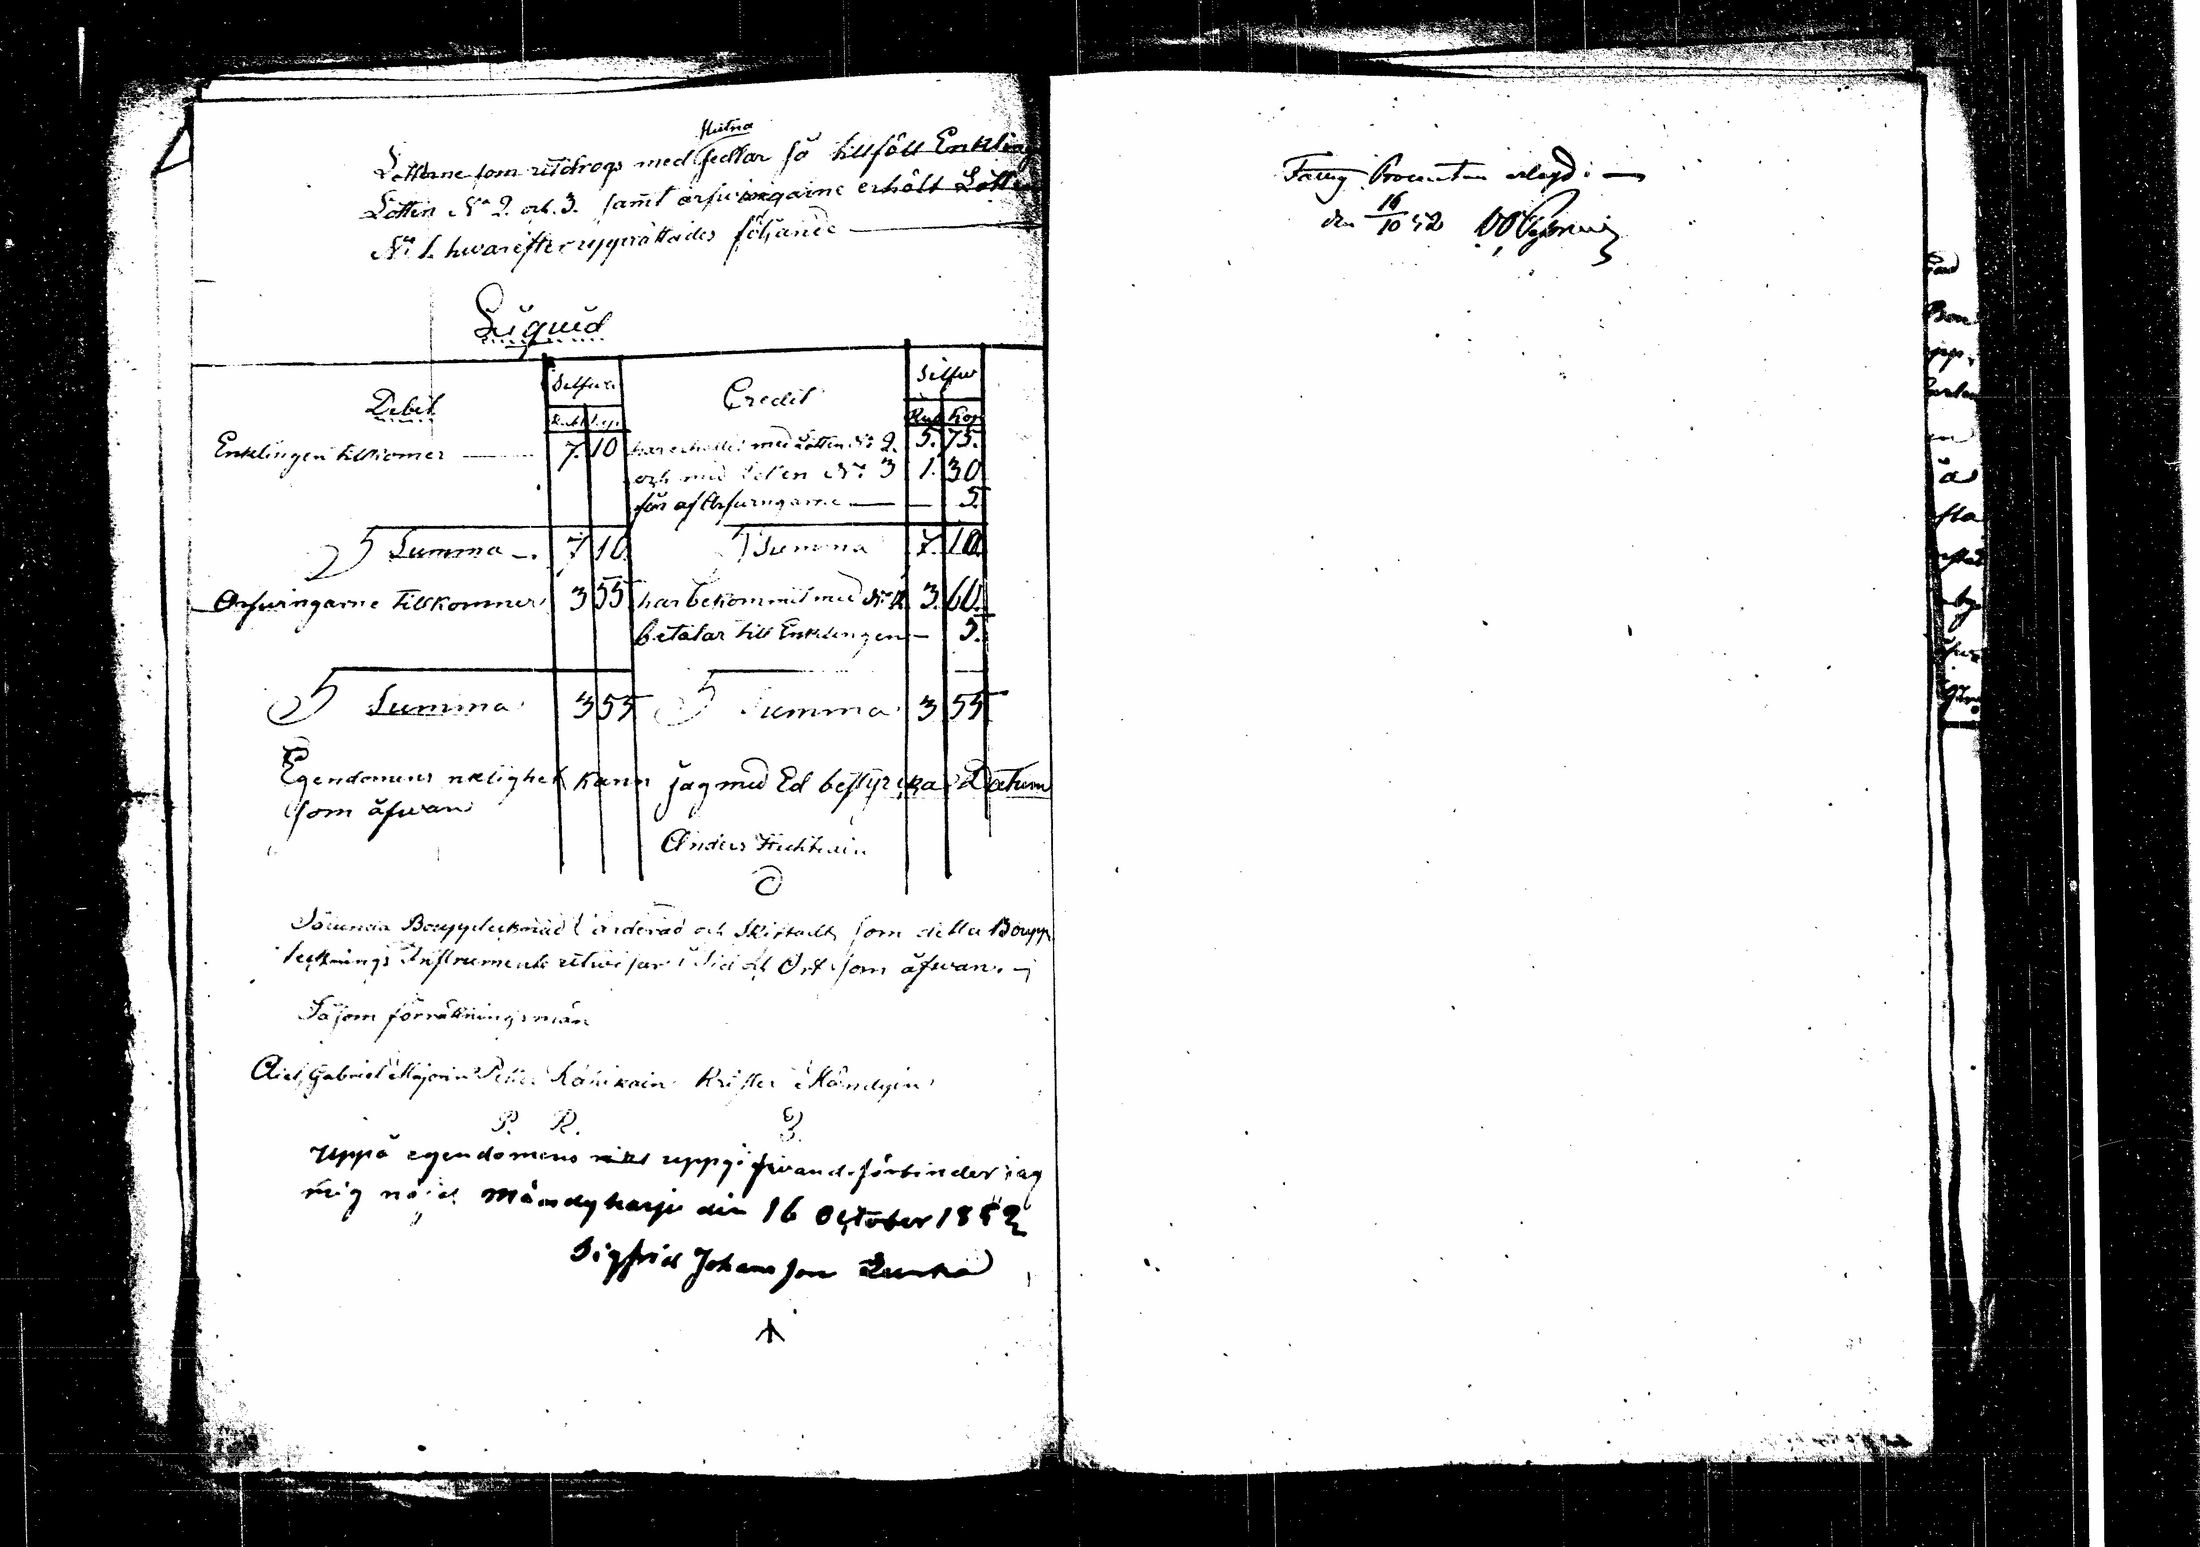 Slutna
Lotterne som utdrogs med sedlar så tillföll Enkling
Lotten No 2. och. 3. samt arfvingarne erhölt Lotten
No 1. hwarefter upprättades följande
Liquid
Debet Silfver Credit Silfver
Rub Kop Rub Kop
Enklingen tillkomer 7. 10 har erhållit med Lotten No 2. 5. 75.
och med Lotten No 3 1. 30
får af Arfvingarne — 5.
Summa 7 10. Summa 7. 10.
Arfvingarne tillkommer 3 55 har bekommit med No 1. 3. 60.
betalar till Enklingen — 5.
Summa 3 55 Summa 3 55
Egendomens kann jag med Ed bestyrcka Datum
som åfvan
Anders
Sålunda Bouppteknad värderad och Skiftadt som detta Boupp
tecknings Instrument utvisar i Tid och Ort som åfvan.
Såsom förrättningsmän
Gabriel Petter Krister Mändyin
P. R.
Uppå egendomens uppgifvande förbinder iag
mig nöjd Mändyharju den 16 October 1852
Sigfrid Johansson
Fattig Procenten erlagd
den 16/10 52